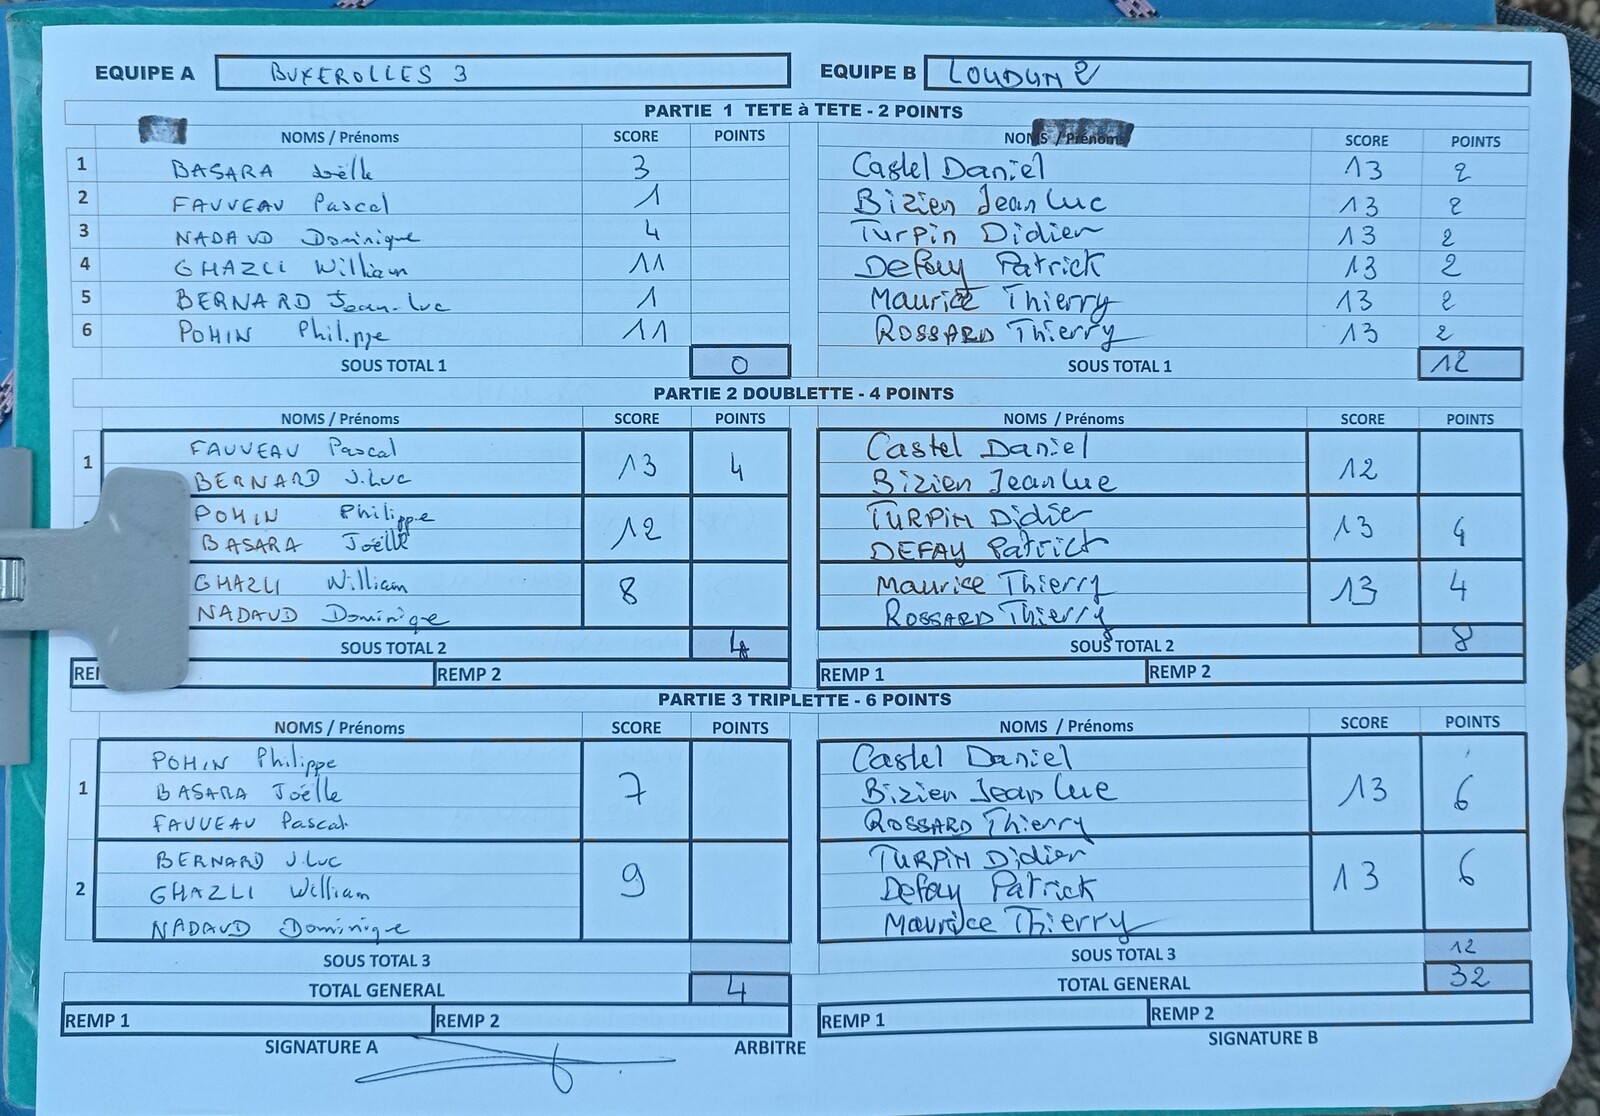 EQUIPE A BUXEROLLES 3 EQUIPE B LOUDUN 2
PARTIE 1 TETE à TETE - 2 POINTS
NOMS / Prénoms SCORE POINTS NOMS / Prénoms SCORE POINTS
1 BASARA Joëlle 3 Castel Daniel 13 2
2 FAUVEAU Pascal 1 Bizien Jean Luc 13 2
3 NADAUD Dominique 4 Turpin Didier 13 2
4 GHAZLI William 11 Defay Patrick 13 2
5 BERNARD Jean-Luc 1 Maurice Thierry 13 2
6 POHIN Philippe 11 ROSSARD Thierry 13 2
SOUS TOTAL 1 0 SOUS TOTAL 1 12
PARTIE 2 DOUBLETTE - 4 POINTS
NOMS / Prénoms SCORE POINTS NOMS / Prénoms SCORE POINTS
1 FAUVEAU Pascal 13 4 Castel Daniel 12
BERNARD J.Luc Bizien Jean Luc
POHIN Philippe 12 TURPIN Didier 13 4
BASARA Joëlle DEFAY Patrick
GHAZLI William 8 Maurice Thierry 13 4
NADAUD Dominique ROSSARD Thierry
SOUS TOTAL 2 4 SOUS TOTAL 2 8
REMP 2 REMP 1 REMP 2
PARTIE 3 TRIPLETTE - 6 POINTS
NOMS / Prénoms SCORE POINTS NOMS / Prénoms SCORE POINTS
1 POHIN Philippe 7 Castel Daniel 13 6
BASARA Joëlle Bizien Jean Luc
FAUVEAU Pascal ROSSARD Thierry
2 BERNARD J.Luc 9 TURPIN Didier 13 6
GHAZLI William Defay Patrick
NADAUD Dominique Maurice Thierry
SOUS TOTAL 3 SOUS TOTAL 3 12
TOTAL GENERAL 4 TOTAL GENERAL 32
REMP 1 REMP 2 REMP 1 REMP 2
SIGNATURE A ARBITRE SIGNATURE B